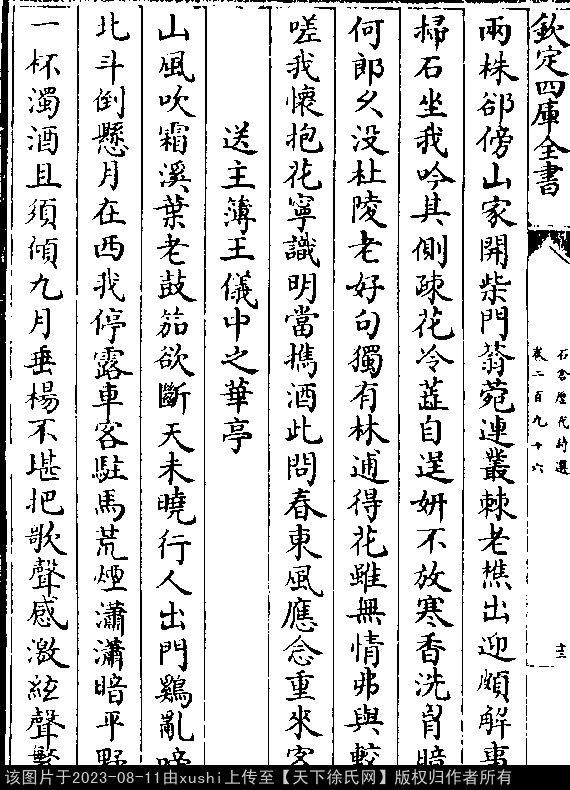 欽定四庫全書
石倉歷代詩選
卷二百九十六
十三
兩株郤傍山家開柴門蓊菀連叢棘老樵出迎頗解事
掃石坐我吟其側疎花冷蕋自逞妍不放寒香洗
何郎久没杜陵老好句獨有林逋得花雖無情弗與較
嗟我懐抱花寧識明當攜酒此問春東風應念重來客
送主簿王儀中之華亭
山風吹霜溪葉老鼓笳欲斷天未曉行人出門鷄亂啼
北斗倒懸月在西我停露車客駐馬荒煙瀟瀟暗平野
一杯濁酒且須傾九月垂楊不堪把歌聲感激絃聲繁
该图片于2023-08-11由xushi上传至【天下徐氏网】版权归作者所有